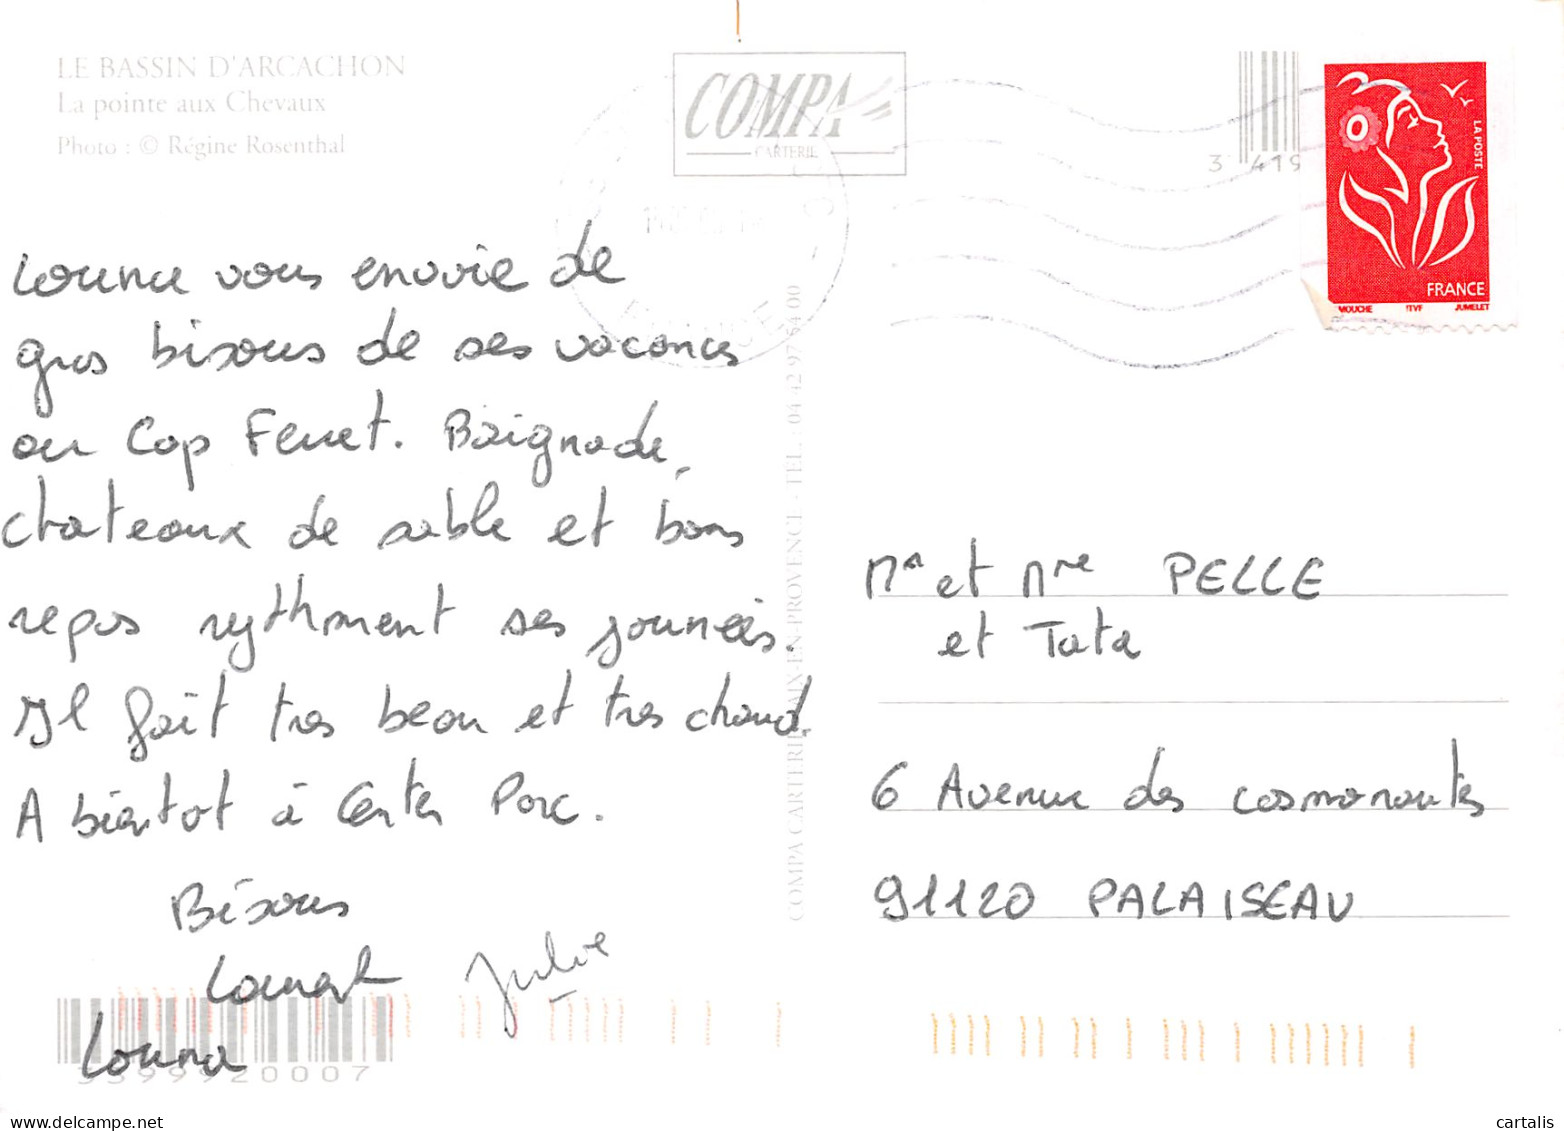 LE BASSIN D'ARCACHON
La pointe aux Chevaux
Photo : © Régine Rosenthal
COMPA
CARTERIE
3 419
LA POSTE
FRANCE
MOUCHE ITVF JUMELET
Louna vous envoie de
gros bisous de ses vacances
au Cap Ferret. Baignade,
chateaux de sable et bons
repas rythment ses journées.
Il fait tres beau et tres chaud.
A bientot à Center Parc.
Bisous
Julie
Louna
3399920007
COMPA CARTERIE AIX-EN-PROVENCE - TEL. : 04 42 97 64 00
Mr et Mme PELLE
et Tata
6 Avenue des cosmonautes
91120 PALAISEAU
cartalis